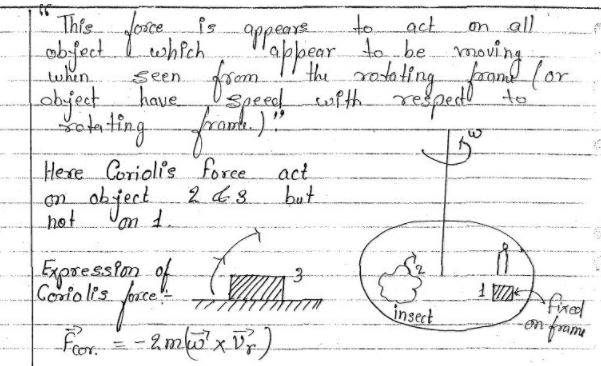 "This force is appears to act on all
object which appear to be moving
when seen from the rotating frame (or
object have speed with respect to
rotating frame.)"
ω
Here Coriolis force act
on object 2 & 3 but
not on 1.
Expression of
Coriolis force:-
3
2
1
insect
fixed
on frame
F⃗cor. = -2m(ω⃗ × V⃗r)